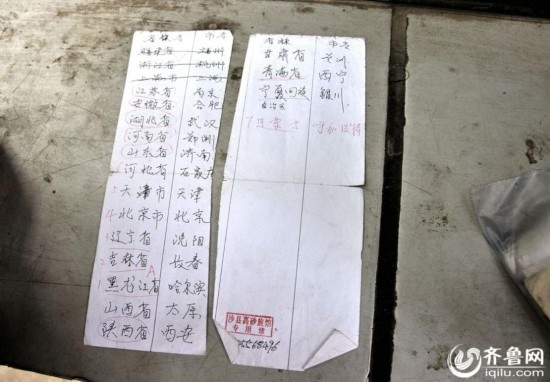 福建省 福州
浙江省 杭州
上海市 上海
江苏省 南京
安徽省 合肥
湖北省 武汉
河南省 郑州
山东省 济南
河北省 石家庄
天津市 天津
4 北京市 北京
辽宁省 沈阳
吉林省 长春
A
黑龙江省 哈尔滨
山西省 太原
陕西省 西安
甘肃省 兰州
青海省 西宁
宁夏回族 银川
自治区
沙县高砂旅馆
专用章
齐鲁网
iqilu.com